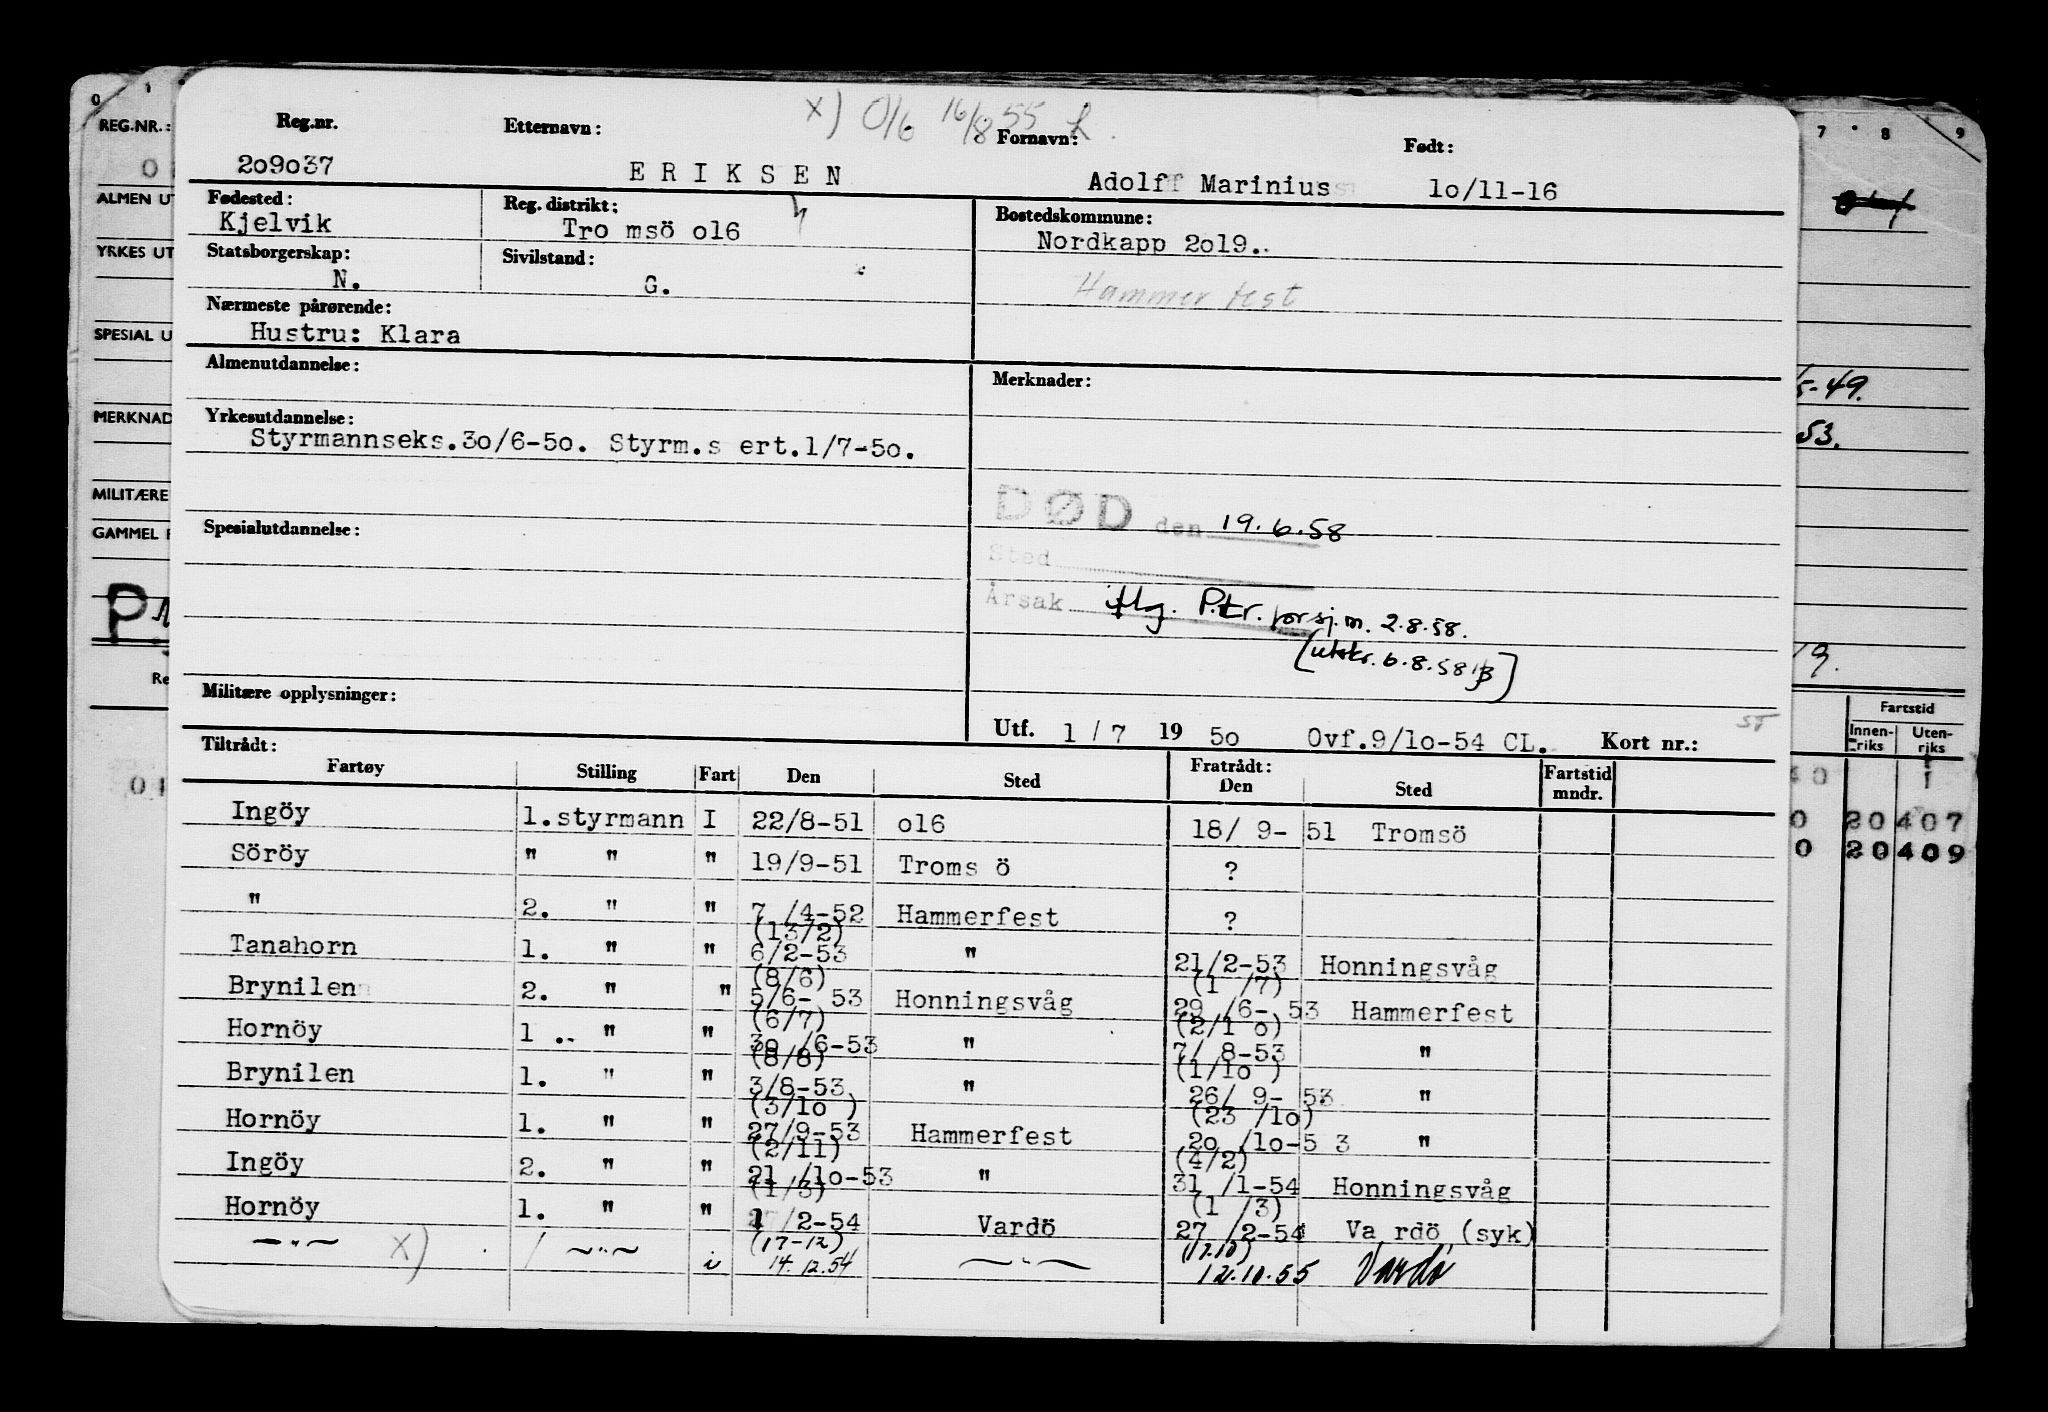 x) O/6 16/8 55
Reg.nr. Etternavn: Fornavn: Født:
209037 ERIKSEN Adolf Marinius 10/11-16
Fødested: Reg. distrikt: Bostedskommune:
Kjelvik Tro msö o16 Nordkapp 2o19.
Statsborgerskap: Sivilstand:
N. G. Hammerfest
Nærmeste pårørende:
Hustru: Klara
Almenutdannelse: Merknader:
Yrkesutdannelse:
Styrmannseks.3o/6-5o. Styrm.s ert.1/7-5o.
DØD den 19.6.58
Spesialutdannelse:
Sted
Årsak iflg. P.tr. for sj.m. 2.8.58.
[utskr. 6.8.58 ]
Militære opplysninger:
Utf. 1 / 7 19 5o Ovf.9/1o-54 CL. Kort nr.:
Tiltrådt: Fratrådt:
Fartøy Stilling Fart Den Sted Den Sted Fartstid mndr.
Ingöy 1.styrmann I 22/8-51 o16 18/ 9- 51 Tromsö
Söröy " " " 19/9-51 Troms ö ?
" 2. " " 7 /4-52 Hammerfest ?
(13/2)
Tanahorn 1. " " 6/2-53 " 21/2-53 Honningsvåg
(8/6) (1 /7)
Brynilen 2. " " 5/6- 53 Honningsvåg 29 /6- 53 Hammerfest
(6/7) (2/1 o)
Hornöy 1 .. " " 3o /6-53 " 7/ 8-53 "
(8/8) (1/1o )
Brynilen 1. " " 3/8-53 " 26/ 9- 53 "
(3/1o ) (23 /1o)
Hornöy 1. " " 27/9-53 Hammerfest 2o /1o-5 3 "
(2/11) (4/2)
Ingöy 2. " " 21 /1o-53 " 31 /1-54 Honningsvåg
(1/3) (1 /3)
Hornöy 1. " " 1 /2-54 Vardö 27 /2-54 Va rdö (syk)
(17-12) (17.10)
—"— x) 1 —"— i 14.12.54 —"— 12.10.55 Vardö
0 1
REG.NR.:
ALMEN UT
YRKES UT
SPESIAL U
MERKNAD
MILITÆRE
GAMMEL
Re
7 8 9
5-49.
53.
19.
Fartstid
Innen-riks Uten-riks
0 20407
0 20409